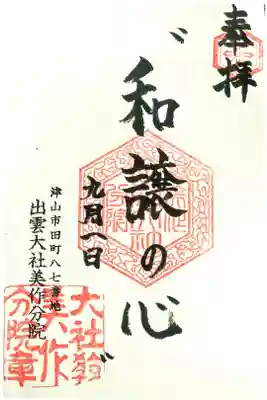 奉拝
〃和譲の心〃
九月八日
津山市田町八七番地
出雲大社美作分院
大社教
美作
分院章